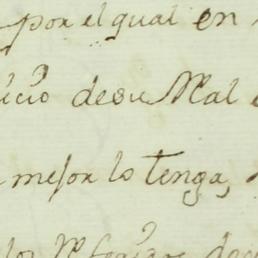 por el qual en
icio desu Mal
mejor lo tenga,